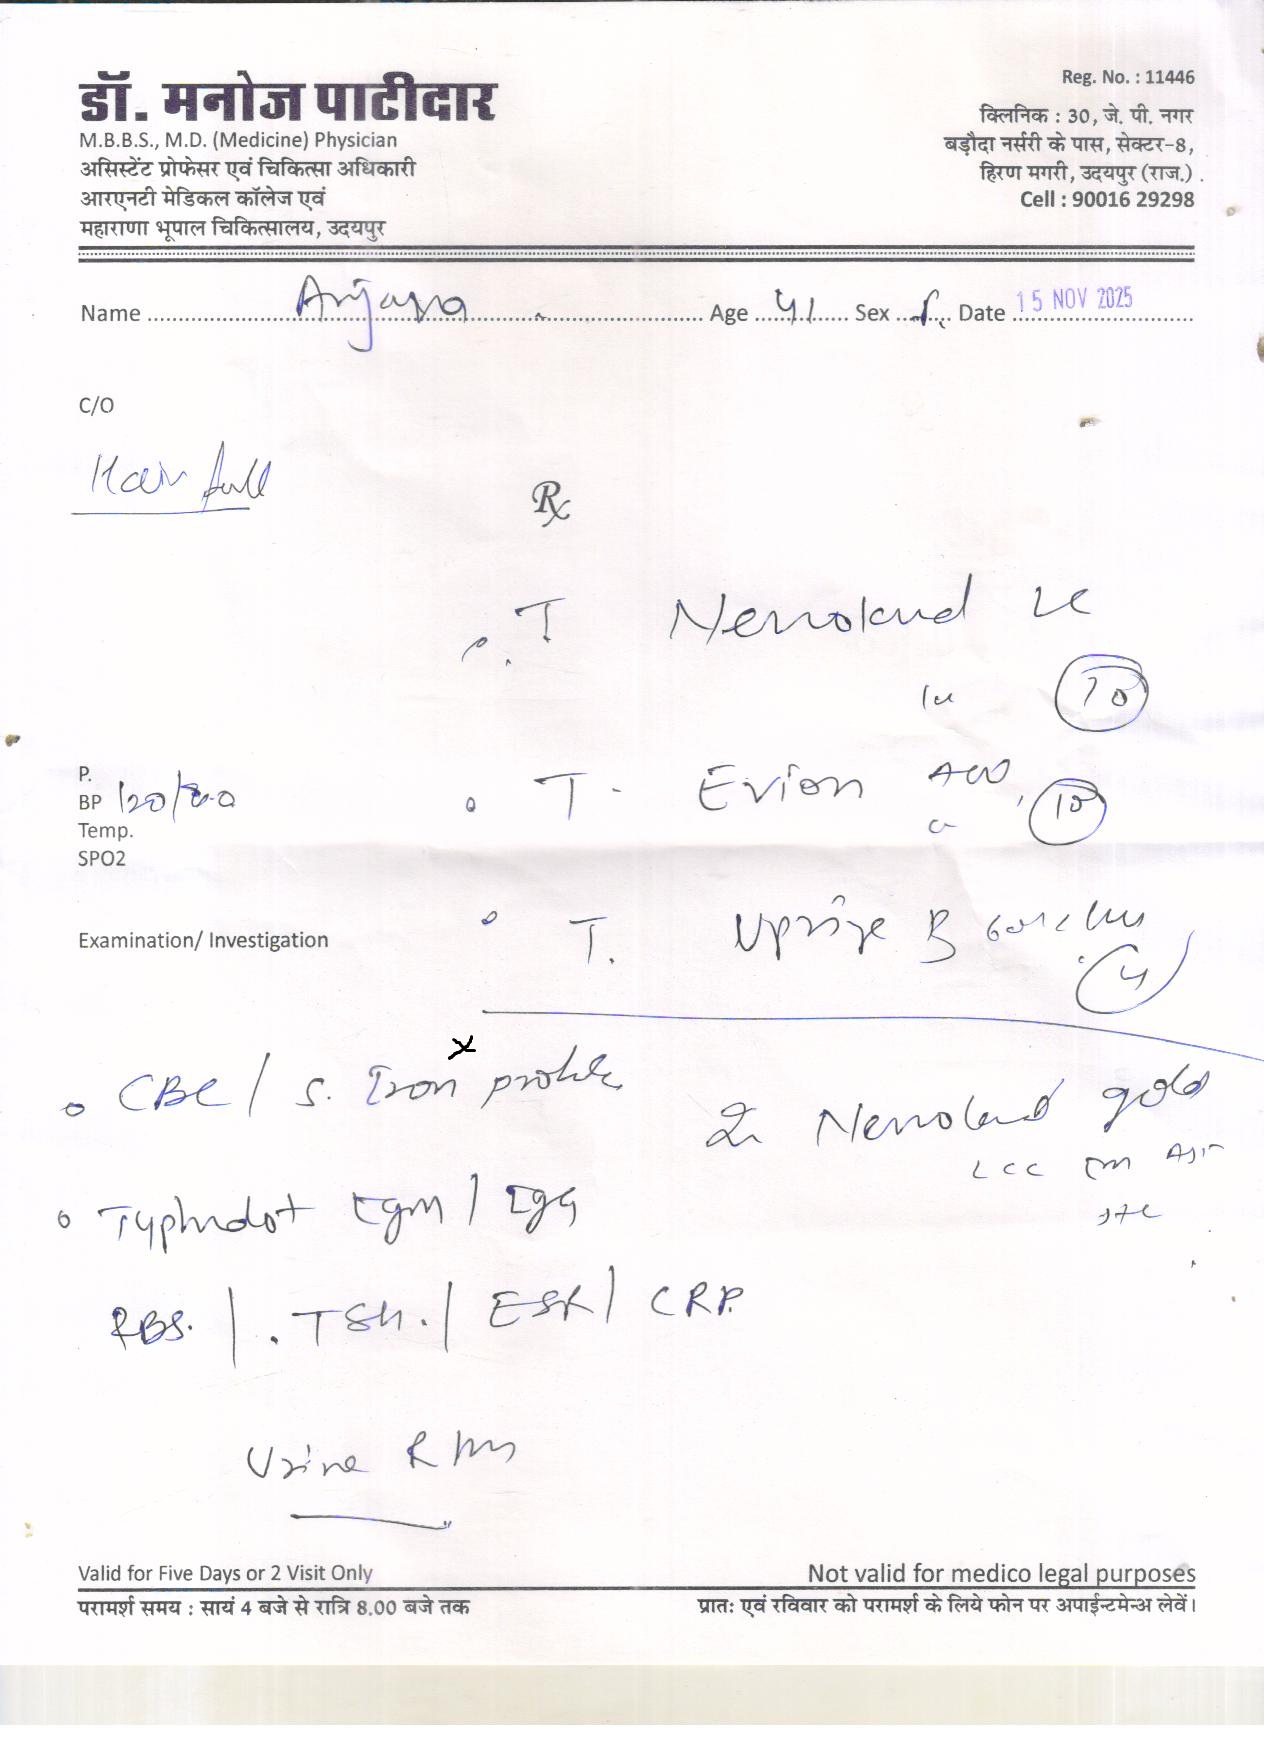 डॉ. मनोज पाटीदार
M.B.B.S., M.D. (Medicine) Physician
असिस्टेंट प्रोफेसर एवं चिकित्सा अधिकारी
आरएनटी मेडिकल कॉलेज एवं
महाराणा भूपाल चिकित्सालय, उदयपुर
Reg. No. : 11446
क्लिनिक : 30, जे. पी. नगर
बड़ौदा नर्सरी के पास, सेक्टर-8,
हिरण मगरी, उदयपुर (राज.)
Cell : 90016 29298
Name Age 41 Sex f. Date 15 NOV 2025
C/O
Hair fall
Rx
T Nerrokind LC
10
P.
BP 120/80
Temp.
SPO2
T. Evion 400
10
Examination/ Investigation
T. Uprise
4
CBC / S. Iron profile
Nerrokind gold
Typhidot IgM / IgG
RBS. / TSH. / ESR / CRP.
Urine
Valid for Five Days or 2 Visit Only
Not valid for medico legal purposes
परामर्श समय : सायं 4 बजे से रात्रि 8.00 बजे तक
प्रातः एवं रविवार को परामर्श के लिये फोन पर अपाईन्टमेन्अ लेवें।